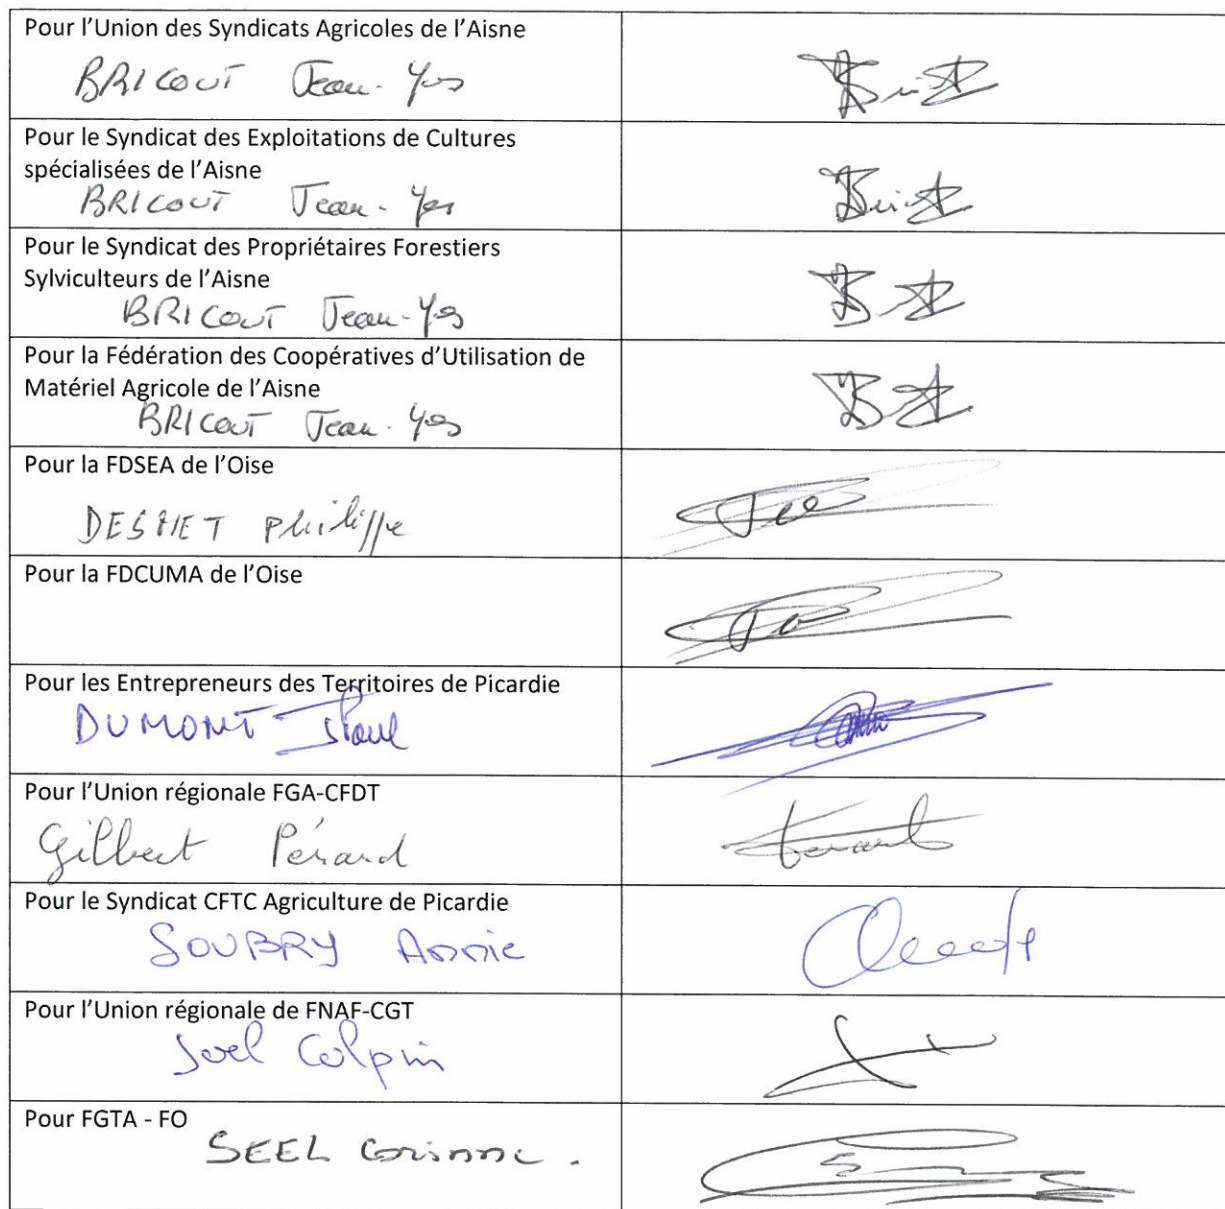 Pour l'Union des Syndicats Agricoles de l'Aisne
BRICOUT Jean-Yves
Pour le Syndicat des Exploitations de Cultures
spécialisées de l'Aisne
BRICOUT Jean-Yves
Pour le Syndicat des Propriétaires Forestiers
Sylviculteurs de l'Aisne
BRICOUT Jean-Yves
Pour la Fédération des Coopératives d'Utilisation de
Matériel Agricole de l'Aisne
BRICOUT Jean-Yves
Pour la FDSEA de l'Oise
DESMET Philippe
Pour la FDCUMA de l'Oise
Pour les Entrepreneurs des Territoires de Picardie
DUMONT
Pour l'Union régionale FGA-CFDT
Gilbert Pérard
Pour le Syndicat CFTC Agriculture de Picardie
SOUBRY Annie
Pour l'Union régionale de FNAF-CGT
Joel Colpin
Pour FGTA - FO
SEEL Corinne.